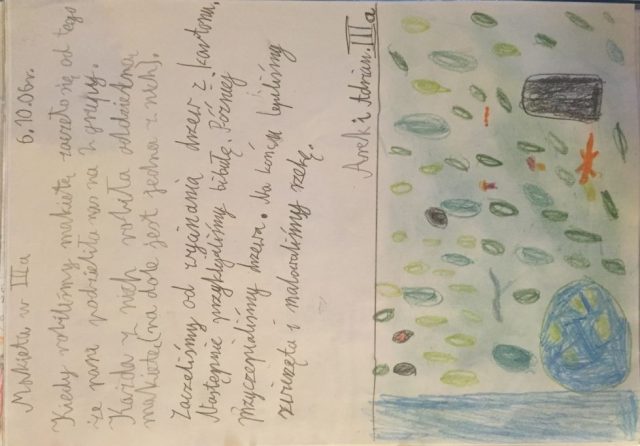 Makieta w IIIa 6.10.06r.
Kiedy robiliśmy makietę zaczeło się od tego
że pani podzieliła nas na 2 grupy.
Każda z nich robiła oddzielną
makietę (na dole jest jedna z nich).
Zaczeliśmy od wycinania drzew z kartonu.
Następnie przyklejaliśmy bibułę. Później
przyczepialiśmy drzewa. Na końcu lepiliśmy
zwierzęta i malowaliśmy rzekę.
Arek i Adrian. IIIa